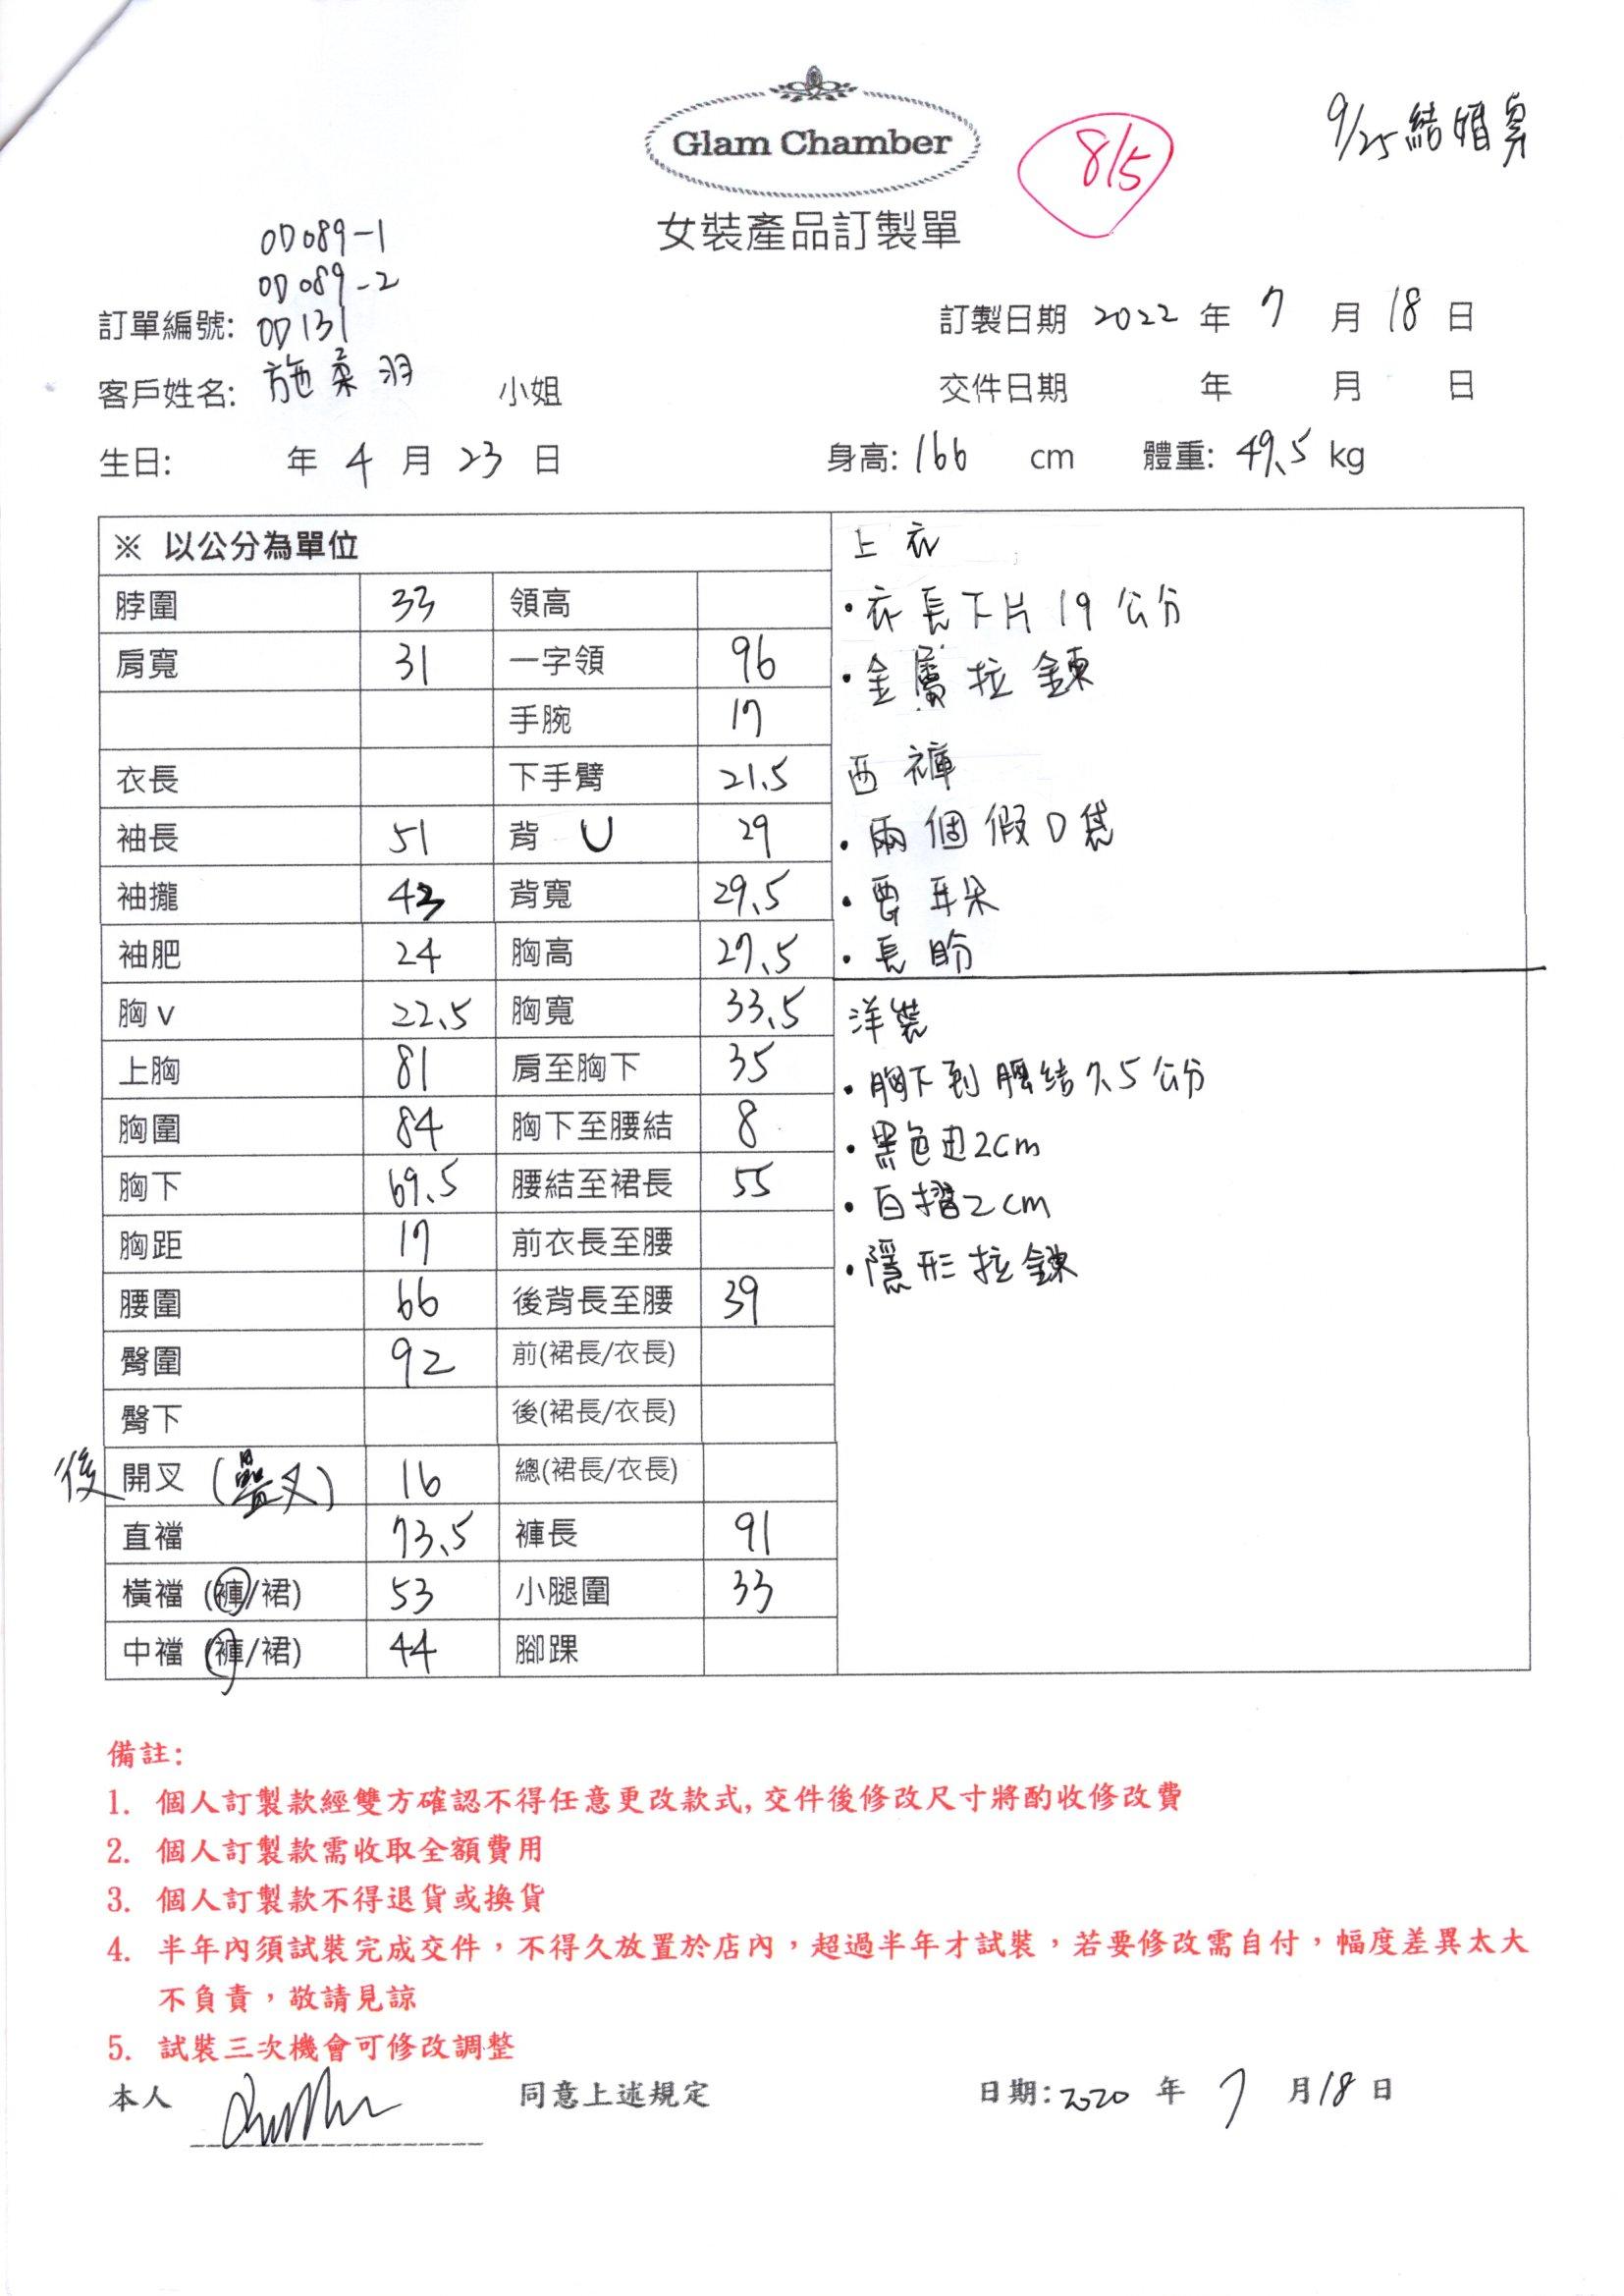 Glam Chamber
8/5
9/25 結婚
女裝產品訂製單
OD089-1
OD089-2
訂單編號: OD131
訂製日期 2022 年 7 月 18 日
客戶姓名: 施柔羽 小姐
交件日期 年 月 日
生日: 年 4 月 23 日
身高: 166 cm 體重: 49.5 kg
※ 以公分為單位
脖圍 33 領高
肩寬 31 一字領 96
手腕 17
衣長 下手臂 21.5
袖長 51 背 U 29
袖攏 43 背寬 29.5
袖肥 24 胸高 27.5
胸v 22.5 胸寬 33.5
上胸 81 肩至胸下 35
胸圍 84 胸下至腰結 8
胸下 69.5 腰結至裙長 55
胸距 17 前衣長至腰
腰圍 66 後背長至腰 39
臀圍 92 前(裙長/衣長)
臀下 後(裙長/衣長)
後 開叉 (疊叉) 16 總(裙長/衣長)
直襠 73.5 褲長 91
橫襠 (褲/裙) 53 小腿圍 33
中襠 (褲/裙) 44 腳踝
上衣
•衣長下片19公分
•金屬拉鍊
西褲
•兩個假口袋
•要耳朵
•長
洋裝
•胸下到腰結7.5公分
•黑色边2cm
•百摺2cm
•隱形拉鍊
備註:
1. 個人訂製款經雙方確認不得任意更改款式, 交件後修改尺寸將酌收修改費
2. 個人訂製款需收取全額費用
3. 個人訂製款不得退貨或換貨
4. 半年內須試裝完成交件，不得久放置於店內，超過半年才試裝，若要修改需自付，幅度差異太大
不負責，敬請見諒
5. 試裝三次機會可修改調整
本人 同意上述規定 日期: 2020 年 7 月 18 日